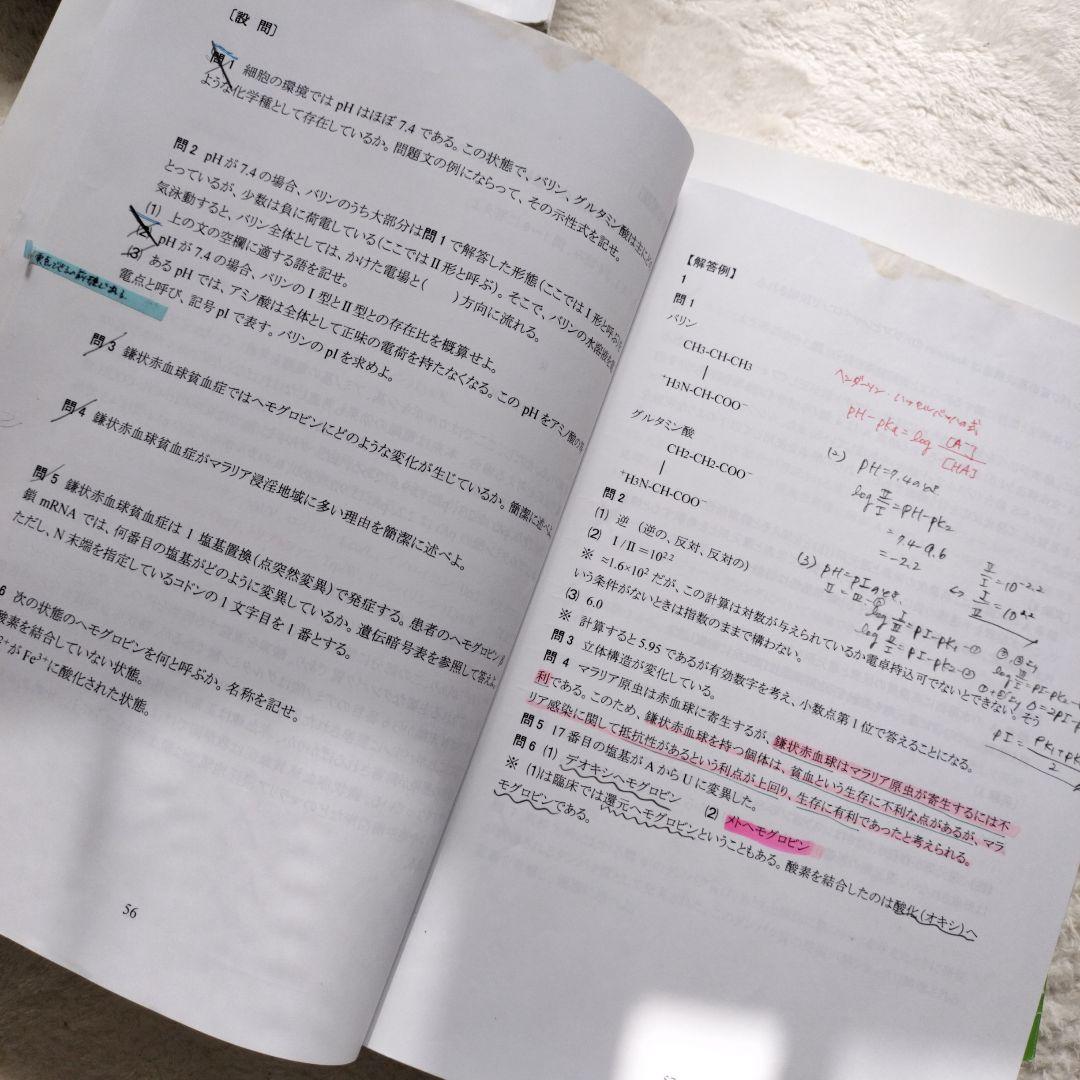 ［設 問］
問1 細胞の環境では pH はほぼ 7.4 である。この状態で、バリン、グルタミン酸は主にど
ような化学種として存在しているか。問題文の例にならって、その示性式を記せ。
問2 pH が 7.4 の場合、バリンのうち大部分は問1で解答した形態（ここではⅠ形と呼ぶ）を
とっているが、少数は負に荷電している（ここではⅡ形と呼ぶ）。そこで、バリンの水溶液を電
気泳動すると、バリン全体としては、かけた電場と（　　）方向に流れる。
(1) 上の文の空欄に適する語を記せ。
(2) pH が 7.4 の場合、バリンのⅠ型とⅡ型との存在比を概算せよ。
(3) ある pH では、アミノ酸は全体として正味の電荷を持たなくなる。この pH をアミノ酸の等
電点と呼び、記号 pI で表す。バリンの pI を求めよ。
問3 鎌状赤血球貧血症ではヘモグロビンにどのような変化が生じているか。簡潔に述べよ
問4 鎌状赤血球貧血症がマラリア浸淫地域に多い理由を簡潔に述べよ。
問5 鎌状赤血球貧血症は 1 塩基置換（点突然変異）で発症する。患者のヘモグロビンβ
鎖 mRNA では、何番目の塩基がどのように変異しているか。遺伝暗号表を参照して答えよ。
ただし、N 末端を指定しているコドンの 1 文字目を 1 番とする。
6 次の状態のヘモグロビンを何と呼ぶか。名称を記せ。
酸素を結合していない状態。
が Fe³⁺に酸化された状態。
56
【解答例】
1
問1
バリン
CH3-CH-CH3
|
⁺H3N-CH-COO⁻
グルタミン酸
CH2-CH2-COO⁻
|
⁺H3N-CH-COO⁻
問2
(1) 逆（逆の、反対、反対の）
(2) Ⅰ/Ⅱ＝10²·²
※ ≈1.6×10² だが、この計算は対数が与えられているか電卓持込可でないとできない。そう
いう条件がないときは指数のままで構わない。
(3) 6.0
※ 計算すると 5.95 であるが有効数字を考え、小数点第 1 位で答えることになる。
問3 立体構造が変化している。
問4 マラリア原虫は赤血球に寄生するが、鎌状赤血球はマラリア原虫が寄生するには不
利である。このため、鎌状赤血球を持つ個体は、貧血という生存に不利な点があるが、マラ
リア感染に関して抵抗性があるという利点が上回り、生存に有利であったと考えられる。
問5 17 番目の塩基が A から U に変異した。
問6 (1) デオキシヘモグロビン (2) メトヘモグロビン
※ (1)は臨床では還元ヘモグロビンということもある。酸素を結合したのは酸化（オキシ）ヘ
モグロビンである。
pH−pKa＝log [A⁻]/[HA]
(2) pH=7.4のとき
log Ⅱ/Ⅰ＝pH−pK₂
＝7.4−9.6
＝−2.2
Ⅱ/Ⅰ＝10⁻²·²
Ⅰ/Ⅱ＝10²·²
(3) pH＝pIのとき